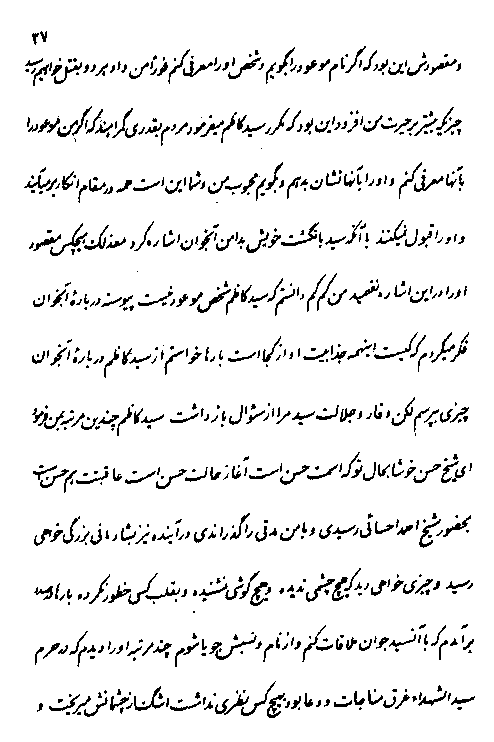 ۲۷
و مقصودش این بود که اگر نام موعود را بگویم و شخص او را معرفی کنم فوراً من و او هر دو بقتل خواهیم رسید
چیزیکه بیشتر بر حیرت من افزود این بود که مکرر سید کاظم میفرمود مردم بقدری گمراهند که اگر من موعود را
بآنها معرفی کنم و او را بآنها نشان بدهم و بگویم محبوب من و شما این است همه در مقام انکار بر میآیند
و او را قبول نمیکنند با آنکه سید با انگشت خویش بدامن آنجوان اشاره کرد معذلک هیچکس مقصود
او را در این اشاره نفهمید من کم کم دانستم که سید کاظم شخص موعود نیست پیوسته در بارهٔ آنجوان
فکر میکردم که کیست اینهمه جذابیت او از کجا است بارها خواستم از سید کاظم در بارهٔ آنجوان
چیزی بپرسم لکن وقار و جلالت سید مرا از سؤال باز داشت سید کاظم چندین مرتبه بمن فرمود
ای شیخ حسن خوشا بحال تو که اسمت حسن است آغاز حالت حسن است عاقبتت هم حسن است
بحضور شیخ احمد احسائی رسیدی و با من مدتی را گذراندی در آینده نیز بشادمانی بزرگی خواهی
رسید و چیزی خواهی دید که هیچ چشمی ندیده و هیچ گوشی نشنیده و بقلب کسی خطور نکرده بارها درصدد
بر آمدم که با آن سید جوان ملاقات کنم و از نام و نسبش جویا شوم چند مرتبه او را دیدم که در حرم
سید الشهداء غرق مناجات و دعا بود بهیچ کس نظری نداشت اشک از چشمانش میریخت و